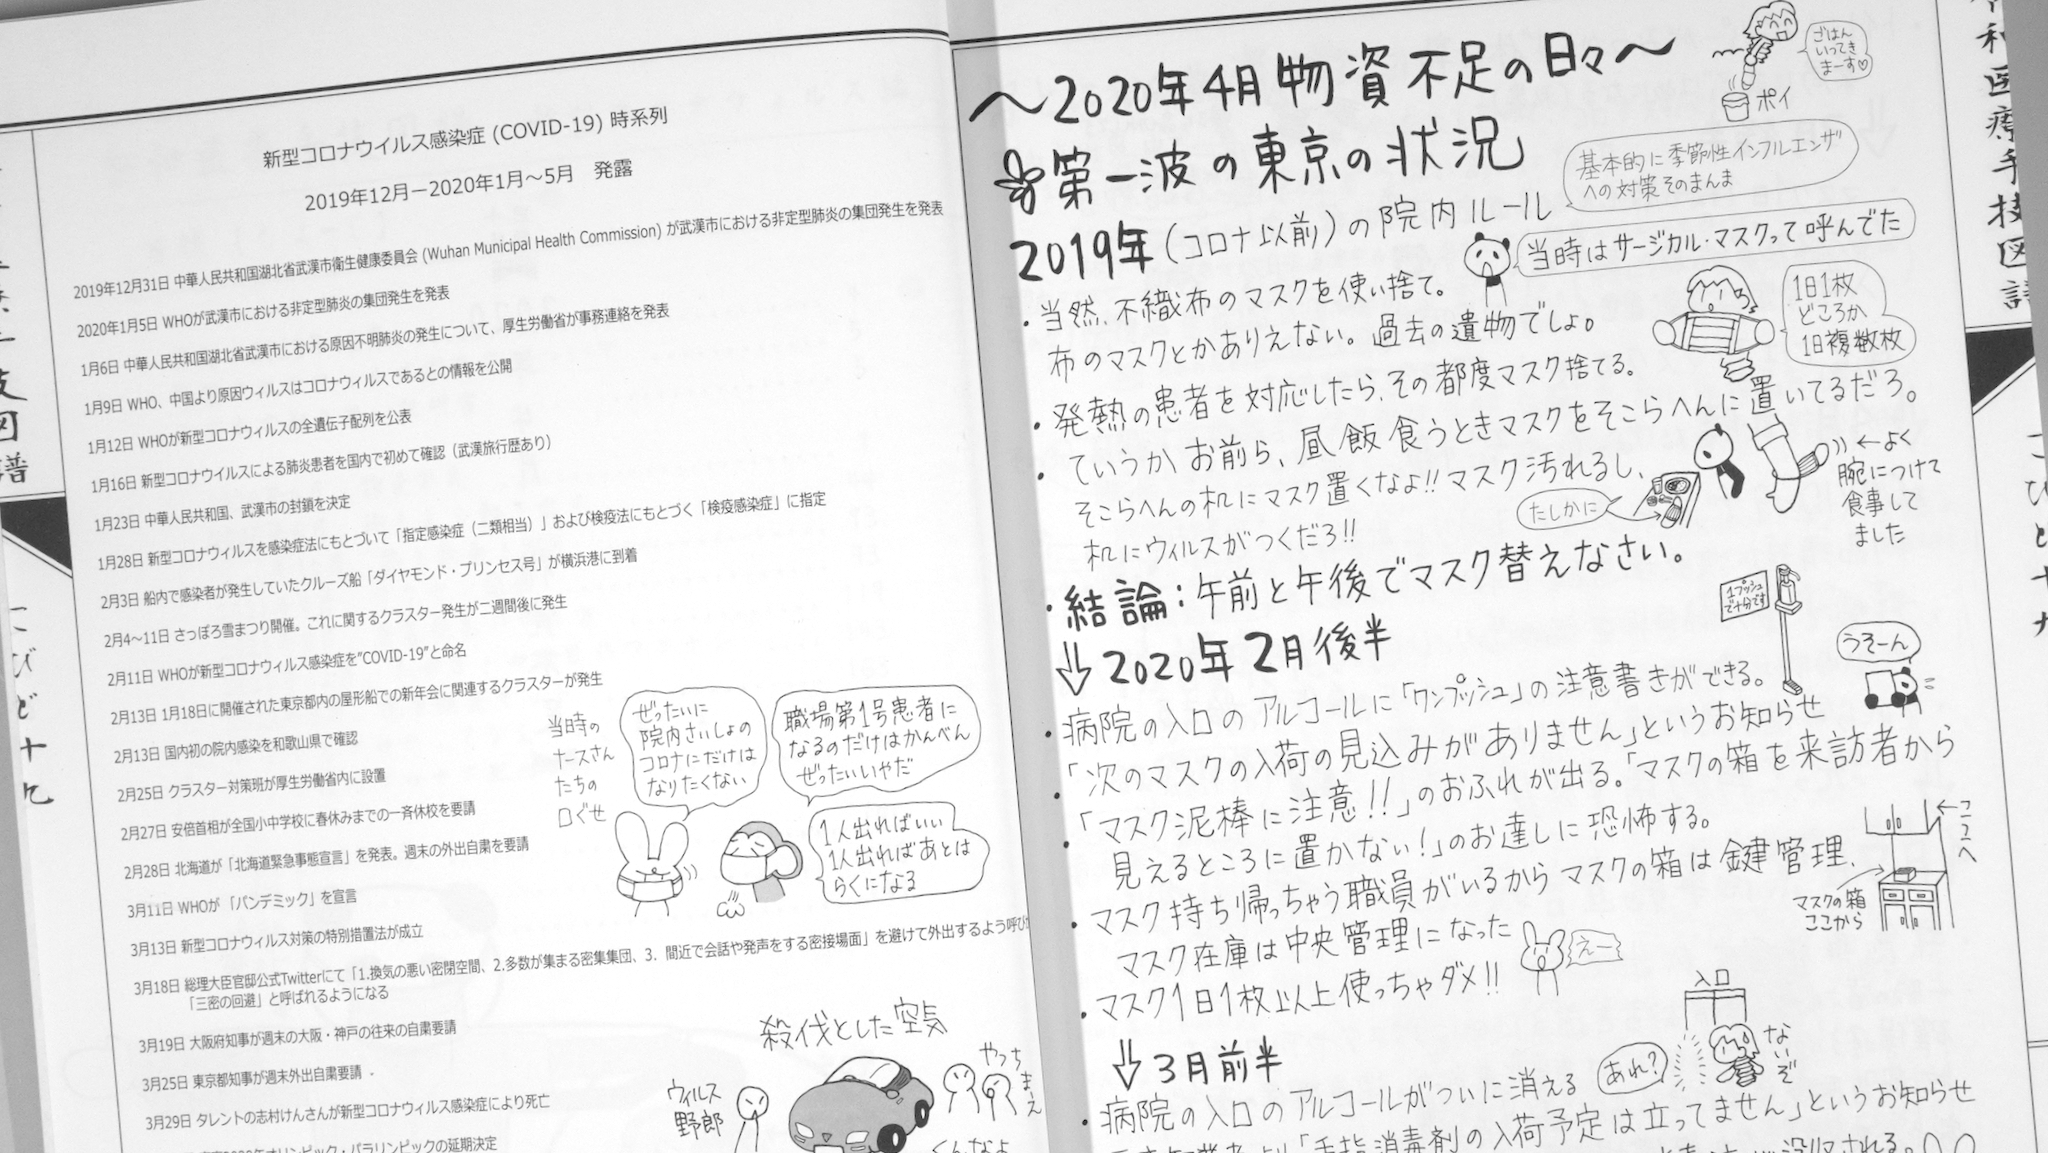 新型コロナウイルス感染症 (COVID-19) 時系列
2019年12月－2020年1月～5月　発露
2019年12月31日 中華人民共和国湖北省武漢市衛生健康委員会 (Wuhan Municipal Health Commission) が武漢市における非定型肺炎の集団発生を発表
2020年1月5日 WHOが武漢市における非定型肺炎の集団発生を発表
1月6日 中華人民共和国湖北省武漢市における原因不明肺炎の発生について、厚生労働省が事務連絡を発表
1月9日 WHO、中国より原因ウィルスはコロナウィルスであるとの情報を公開
1月12日 WHOが新型コロナウィルスの全遺伝子配列を公表
1月16日 新型コロナウイルスによる肺炎患者を国内で初めて確認（武漢旅行歴あり）
1月23日 中華人民共和国、武漢市の封鎖を決定
1月28日 新型コロナウィルスを感染症法にもとづいて「指定感染症（二類相当）」および検疫法にもとづく「検疫感染症」に指定
2月3日 船内で感染者が発生していたクルーズ船「ダイヤモンド・プリンセス号」が横浜港に到着
2月4～11日 さっぽろ雪まつり開催。これに関するクラスター発生が二週間後に発生
2月11日 WHOが新型コロナウィルス感染症を"COVID-19"と命名
2月13日 1月18日に開催された東京都内の屋形船での新年会に関連するクラスターが発生
2月13日 国内初の院内感染を和歌山県で確認
2月25日 クラスター対策班が厚生労働省内に設置
2月27日 安倍首相が全国小中学校に春休みまでの一斉休校を要請
2月28日 北海道が「北海道緊急事態宣言」を発表。週末の外出自粛を要請
3月11日 WHOが「パンデミック」を宣言
3月13日 新型コロナウイルス対策の特別措置法が成立
3月18日 総理大臣官邸公式Twitterにて「1.換気の悪い密閉空間、2.多数が集まる密集集団、3．間近で会話や発声をする密接場面」を避けて外出するよう呼び
「三密の回避」と呼ばれるようになる
3月19日 大阪府知事が週末の大阪・神戸の往来の自粛要請
3月25日 東京都知事が週末外出自粛要請
3月29日 タレントの志村けんさんが新型コロナウィルス感染症により死亡
オリンピック・パラリンピックの延期決定
当日時の
ナースさん
たちの
口ぐせ
ぜったいに
院内さいしょの
コロナにだけは
なりたくない
職場第1号患者に
なるのだけはかんべん
ぜったいいやだ
1人出ればいい
1人出ればあとは
らくになる
殺伐とした空気
ウィルス
野郎
やっち
まえ
くんなよ
～2020年4月物資不足の日々～
第一波の東京の状況
ごはん
いってき
まーす♡
ポイ
2019年(コロナ以前)の院内ルール
基本的に季節性インフルエンザ
への対策そのまんま
当時はサージカル・マスクって呼んでた
・当然、不織布のマスクを使い捨て。
布のマスクとかありえない。過去の遺物でしょ。
1日1枚
どころか
1日複数枚
・発熱の患者を対応したら、その都度マスク捨てる。
・ていうかお前ら、昼飯食うときマスクをそこらへんに置いてるだろ。
そこらへんの机にマスク置くなよ!!マスク汚れるし、
机にウィルスがつくだろ!!
たしかに
←よく
腕につけて
食事して
ました
・結論：午前と午後でマスク替えなさい。
⇓2020年2月後半
1プッシュ
で十分です
うそーん
・病院の入口のアルコールに「ワンプッシュ」の注意書きができる。
・「次のマスクの入荷の見込みがありません」というお知らせ
・「マスク泥棒に注意!!」のおふれが出る。「マスクの箱を来訪者から
見えるところに置かない!」のお達しに恐怖する。
・マスク持ち帰っちゃう職員がいるからマスクの箱は鍵管理、
マスク在庫は中央管理になった
・マスク1日1枚以上使っちゃダメ!!
えー
マスクの箱
ここから
←ココへ
⇓3月前半
入口
あれ?
ないぞ
・病院の入口のアルコールがついに消える
「手指消毒剤の入荷予定は立ってません」というお知らせ
没収される。
令和医療手技図譜
こびど十九
こびど十九